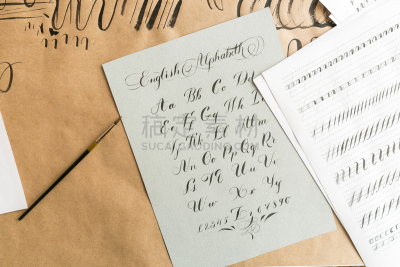 English Alphabeth
Aa Bb Cc Dd
Ee Ff Gg Hh Ii
Jj Kk Ll Mm
Nn Oo Pp Qq Rr
Ss Tt Uu Vv
Ww Xx Yy
Zz
1234567890
搞定素材
SUCAI.GAODING.COM